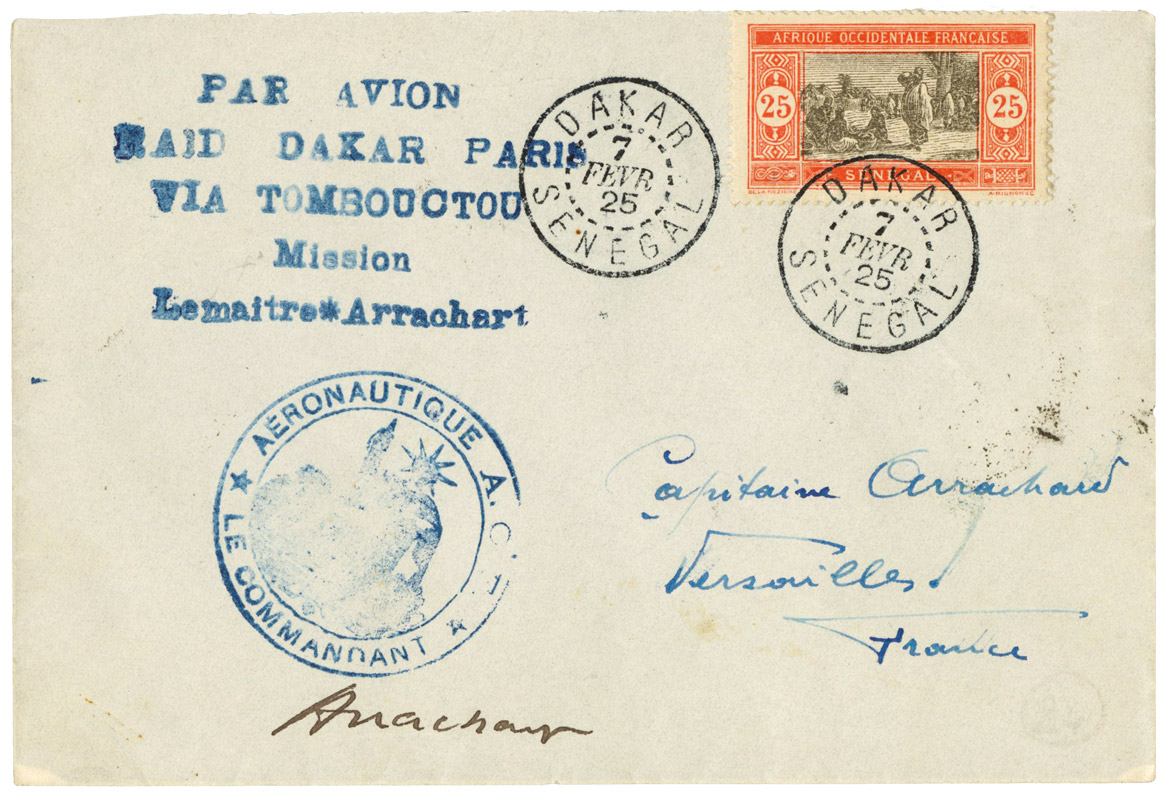 PAR AVION
RAID DAKAR PARIS
VIA TOMBOUCTOU
Mission
Lemaitre*Arrachart
DAKAR
7
FEVR
25
SENEGAL
AFRIQUE OCCIDENTALE FRANÇAISE
25 25
SÉNÉGAL
DE LA NÉZIÈRE A. MIGNON SC
DAKAR
7
FEVR
25
SENEGAL
AÉRONAUTIQUE A.O.F.
LE COMMANDANT
Capitaine Arrachard
Versailles
France
Arrachart